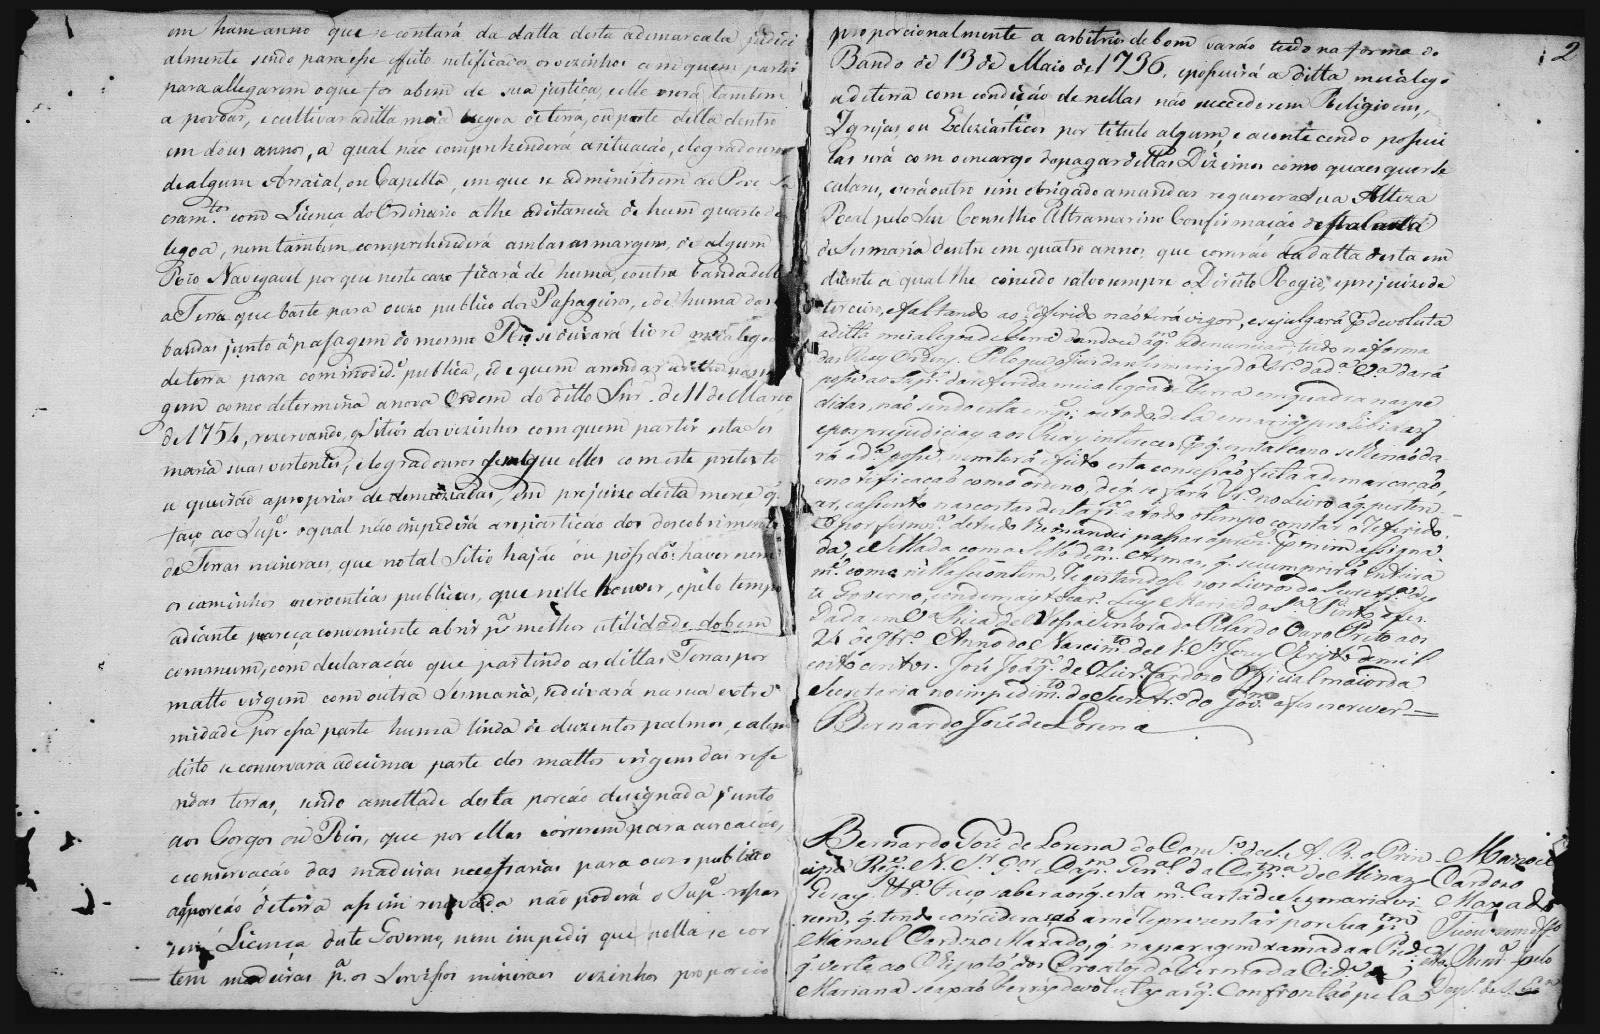 em hum anno que se contará da datta desta a demarcala judici
almente sendo para esse effeito notificados os vezinhos com quem partir
para allegarem o que for abem de sua justiça, e elle será tambem
a povoar, e cultivar a ditta meia legoa de terra, ou parte della dentro
em dous annos, a qual não comprehenderá a situacaó, e logradouros
de algum Arraial, ou Capella, em que se administrem ao Povo Sa
cram.tos com Licença do Ordinario athe a distancia de hum quarto de
legoa, nem tambem comprehenderá ambas as margens de algum
Rio Navegavel por que neste cazo ficará de huma, e outra banda delle
a Terra que baste para ouzo publico dos Passageiros, e de huma das
bandas junto á passagem do mesmo Rio se deixará livre meia legoa
de terra para commodid.e publica, e de quem arrendar a ditta passa
gem como determina a nova Ordem do ditto Snr. de 11 de Março
de 1754, rezervando os Sitios dos vezinhos com quem partir esta Ses
maria suas vertentes, e logradouros sem que elles com este pretexto
se queirão apropriar de demaziadas, em prejuizo desta mercê q.
faço ao Sup.e o qual não impedirá a repartição dos descobrimentos
de Terras mineraes, que no tal Sitio hajão ou possão haver nem
os caminhos e serventias publicas, que nelle houver, e pelo tempo
adiante pareça conveniente abrir p.a melhor utilidade do bem
commum, com declaração que partindo as dittas Terras por
matto virgem com outra Sesmaria, se deixará na sua extre
midade por essa parte huma linda de duzentos palmos, e alem
disto se conservará a decima parte dos mattos virgens das refe
ridas terras, sendo a mettade desta porção designada junto
aos Corgos ou Rios, que por ellas correrem para a creação,
e conservação das madeiras necessarias para o uzo publico
a qual porção de terra assim rezervada não poderá o Sup.e rossar
sem Licença deste Governo, nem impedir que nella se cor
tem madeiras p.a os Servissos mineraes vezinhos proporcio
2
proporcionalmente a arbitrio de bom varão tudo na forma do
Bando de 13 de Maio de 1736, e possuirá a ditta meia lego
a de terra com condição de nellas não sucederem Religioens,
Igrejas, ou Ecleziasticos por titulo algum, e acontecendo possui
las será com o encargo de pagar dellas Dizimos como quaesquer Se
culares, e será outro sim obrigado a mandar requerer a Sua Alteza
Real pelo Seu Conselho Ultramarino Confirmação desta Carta
de Sesmaria dentro em quatro annos, que correrão da datta desta em
diante a qual lhe concedo salvo sempre o Direito Regio, e prejuizo de
terceiro, e faltando ao referido não terá vigor, e se julgará por devoluta
a ditta meia legoa de terra dando-se a q.m a denunciar, tudo na forma
das Reaes Ordens. Pelo que o Juiz das Sesmarias do dará
posse ao Sup.e da referida meia legoa de Terra em quadra nas pe
didas, não sendo esta em
e por prejudiciaes aos Reaes interesses
rá a d.a posse, nem terá effeito esta concessão feita a demarcação,
e notificação como ordeno, de q. se fará no Livro a q. perten
cer, e assento nas costas desta p.a a todo o tempo constar o referido.
E por firmeza de tudo lhe mandei passar a prezente por mim assigna
da, e Sellada com o Sello de minhas Armas, q. se cumprirá inteira
m.te como nella se contem, registando-se nos Livros da Secretr.a des
te Governo, e onde mais tocar. Luiz Maria da S.a Pinto a fez.
Dada em V.a Rica de N. Snr.a do Pilar do Ouro Preto aos
24 de 9br.o Anno do Nascim.to de N. Sr. Jezus Christo de mil
oito centos. José Joaq.m de Olivr.a Cardozo Official maior da
Secretaria no impedim.to do Secretr.o do Gov.o a fes escrever =
Bernardo José de Lorena
Bernardo José de Lorena do Cons.o de S. A. R. o Prin
cipe Reg.e N. Sr. G.or Cap.m Gen.al da Cap.nia de Minas
Geraes &.a Faço saber aos q. esta m.a Carta de Sesmaria vi
rem, q. tendo concideração a me reprezentar por sua p.am
Manoel Cardozo Maxado, q. na paragem xamada a
q. verte ao da Cid.e de
Mariana se axão terras devolutas as q. Confrontão pela
Manoel
Cardozo
Maxado